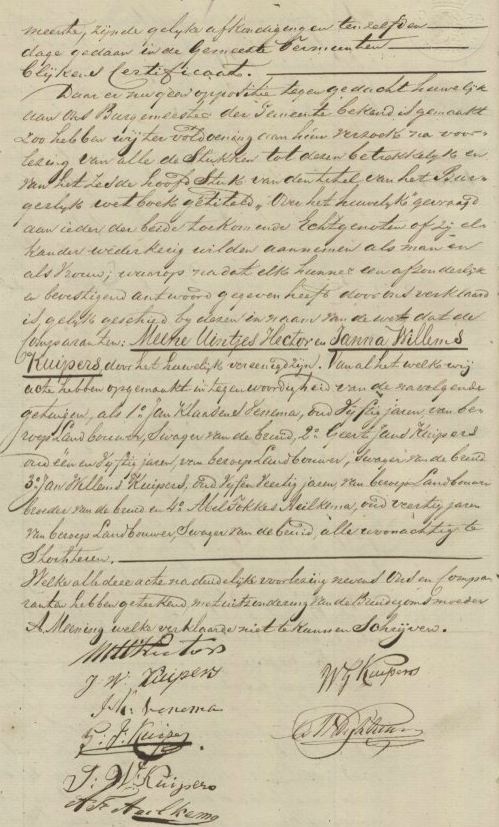 meente, zijnde gelijke afkondigingen ten zelfden
dage gedaan in de Gemeente Termunten
blijkens Certificaat.
Daar er nu geen oppositie tegen gedacht huwelijk
aan ons Burgemeester der Gemeente bekend is gemaakt
zoo hebben wij ter voldoening aan hun verzoek na voor-
lezing van alle de Stukken tot dezen betrekkelijk en
van het zesde hoofd Stuk van den titel van het Bur-
gerlijk wetboek getiteld „ Over het huwelijk gevraagd
aan ieder der beide toekomende Echtgenoten of zij el-
kander wederkeerig wilden aannemen als man en
als vrouw; waarop nadat elk hunner een afzonderlijk
en bevestigend antwoord gegeven heeft door ons verklaard
is gelijk geschied bij dezen in naam van de wet dat de
Comparanten: Meene Uintjes Hector en Janna Willems
Kuipers, door het huwelijk vereenigd zijn. Van al het welke wij
acte hebben opgemaakt in tegenwoordigheid van de navolgende
getuigen, als 1o Jan Klaassens Venema, oud Vijftig jaren, van be-
roep Landbouwer, Swager van de bruid, 2o Geert Jans Kuipers
oud een en Vijftig jaren, van beroep Landbouwer, Swager van de bruid
3o Jan Willems Kuipers, Oud Vijf en Veertig jaren van beroep Landbouwer
broeder van de bruid en 4o Abel Fokkes Aeilkema, oud veertig jaren
van beroep Landbouwer, Swager van de bruid, alle woonachtig te
Slochteren.
Welke alle deze acte na duidelijke voorlezing nevens Ons en Compa
ranten hebben geteekend, met uitzondering van de Bruidegoms moeder
A. Meening welke verklaarde niet te kunnen Schrijven.
M U Hector
J. W. Kuipers
W J Kuipers
J. K. Venema
G. J. Kuipers
J. W. Kuipers
A. F. Aeilkema